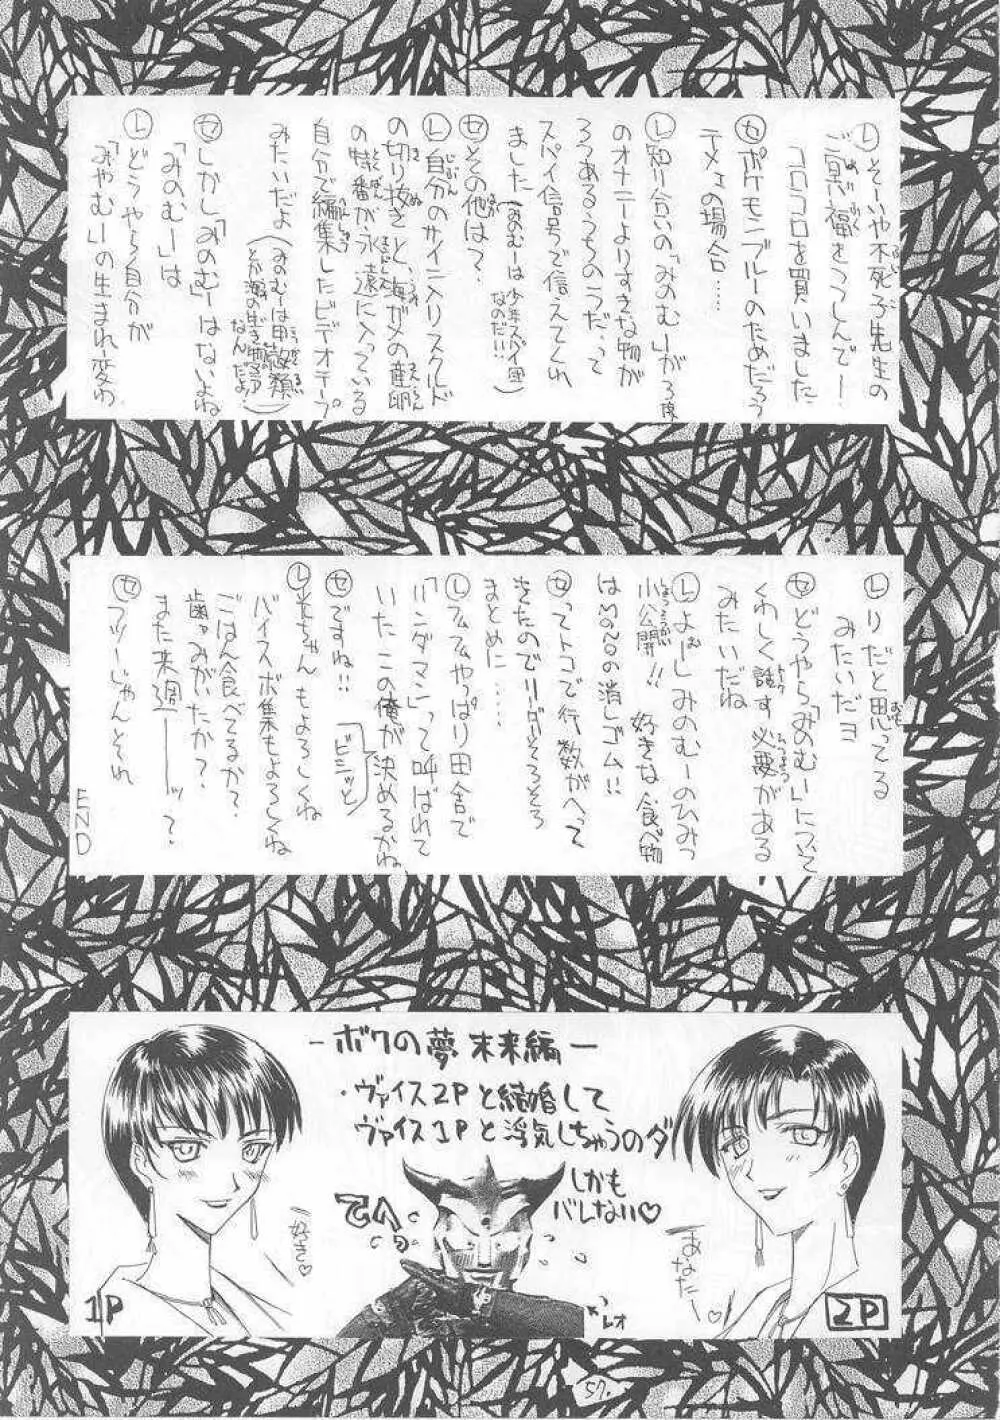 Ⓛそーいや不死子先生の
ご冥福をつつしんでー
コロコロを買いました
Ⓢポケモンブルーのためだろう
テメェの場合……
Ⓛ知り合いの「みのむー」が
のオナニーよりすきな物が
あるうちのうだ、って
スパイ信号で信えてくれ
ました(みのむーは少年スパイ団
なのだ!!)
Ⓢその他は?
Ⓛ自分のサイン入りスクルド
の切り抜きと、海ガメの産卵
の特番が永遠に入っている
自分で編集したビデオテープ
みたいだよ(みのむーは甲殻類
とか海の生き物マニア
なんだよ)
Ⓢしかし「みのむー」はないよね
「みのむー」は
Ⓛどうやら自分が
「みやむー」の生まれ変わ
Ⓛりだと思ってる
みたいだヨ
Ⓢどうやら「みのむー」について
くわしく話す必要がある
みたいだね
Ⓛよーし みのむーのひみつ
小公開!! 好きな食べ物
はMONOの消しゴム!!
Ⓢってトコで行数がへって
きたのでリーダーそろそろ
まとめに……
Ⓛフムフムやっぱり田舎で
「ハンダマン」って呼ばれて
いたこの俺が決めるかね
Ⓢですね!!
ビシッと
Ⓛもちゃんもよろしくね
バイスボ集もよろしくね
ごはん食べてるか?
歯みがいたか?
また来週——ッ?
Ⓢフツーじゃんそれ
END
-ボクの夢 未来編-
・ヴァイス2Pと結婚して
ヴァイス1Pと浮気しちゃうのダ
しかも
バレない♡
てへっ
好き♡
あなたー♡
レオ
1P
2P
57.